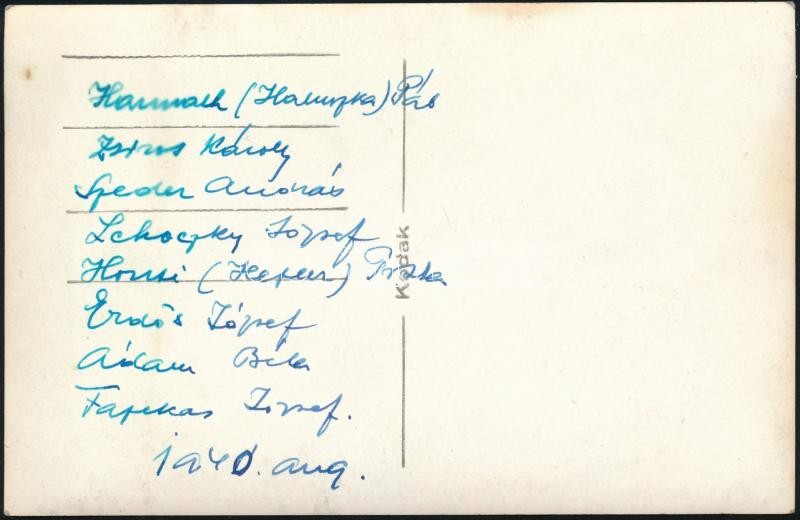 Harmath (Haluzka) Pál
Zsiros Károly
Speder András
Lehoczky József
Honti (Hepler) Piska
Erdős József
Ádám Béla
Fazekas József.
1940. aug.
Kodak